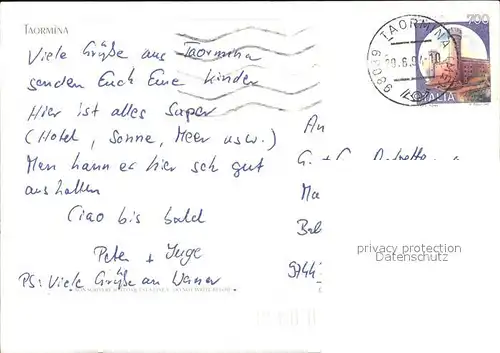 TAORMINA
Viele Grüße aus Taormina
senden Euch Eure Kinder
Hier ist alles Super
(Hotel, Sonne, Meer usw.)
Man kann es hier sehr gut
aushalten
Ciao bis bald
Peter + Inge
PS: Viele Grüße an Werner
700
TAORMINA
98039
ITALIA
An
G. +
Ma
privacy protection
Datenschutz